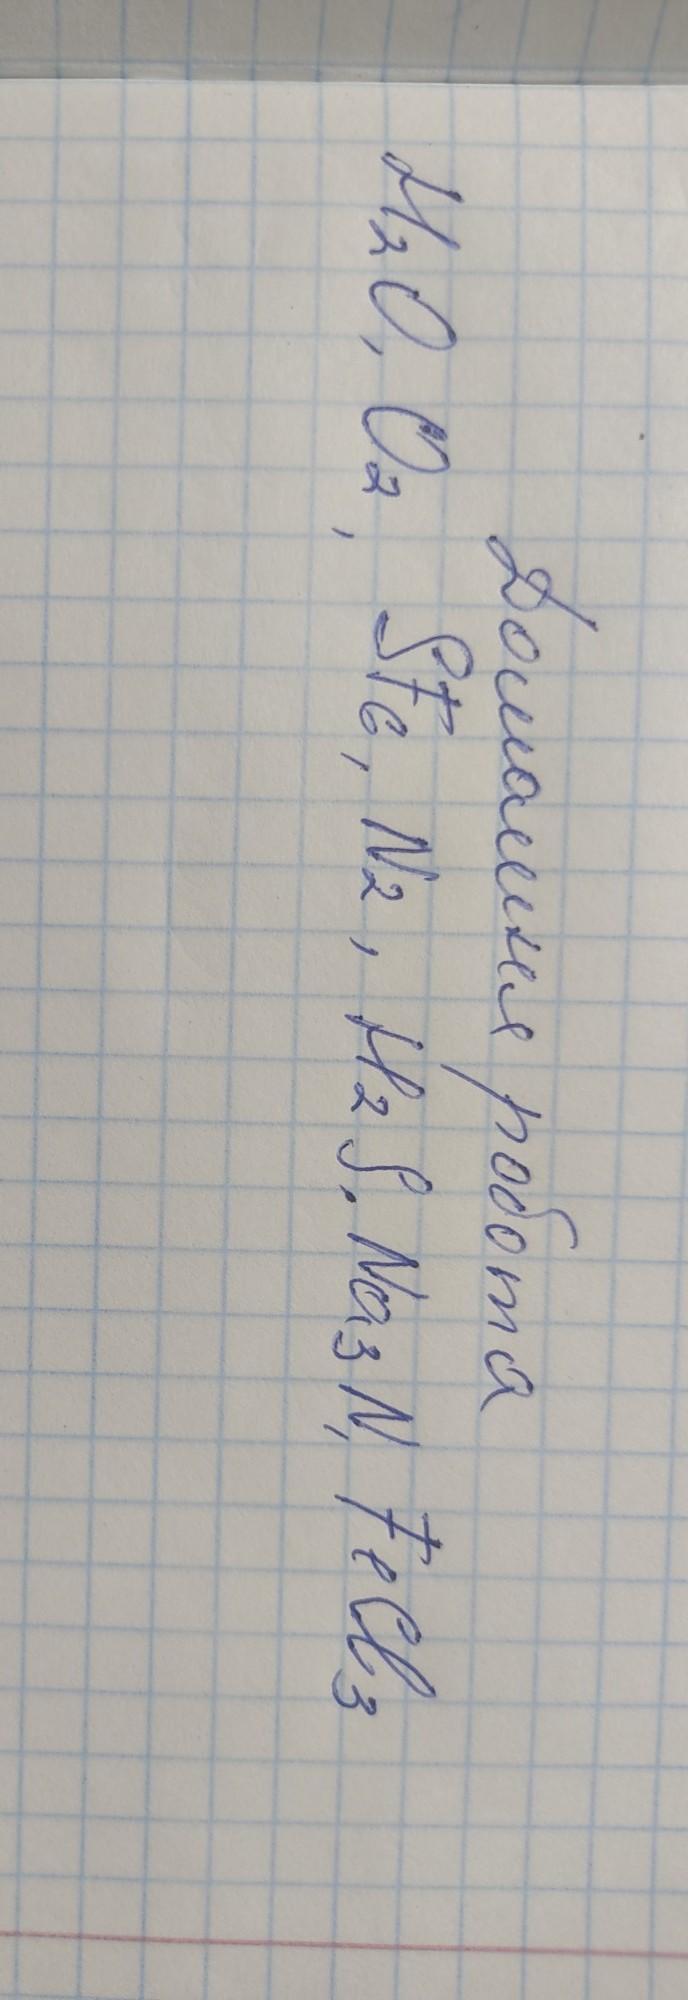 Домашня робота
H₂O, O₂, SF₆, N₂, H₂S, Na₃N, FeCl₃